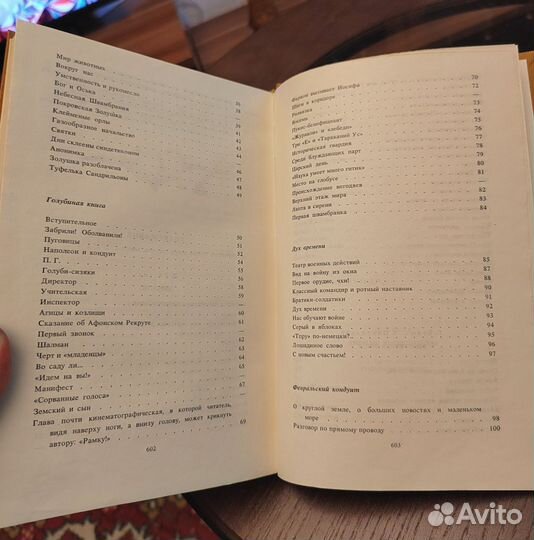 Мир животных
Вокруг нас
Умственность и рукомесло 36
Бог и Оська 38
Небесная Швамбрания 39
Покровская Золушка 40
Клейменые орлы 41
Газообразное начальство 43
Святки 44
Дни склеены синдетиконом —
Анонимка 46
Золушка разоблачена 48
Туфелька Сандрильоны 49
Голубиная книга
Вступительное
Забрили! Оболванили! 50
Пуговицы 51
Наполеон и кондуит 52
П. Г. 54
Голуби-сизяки 55
Директор 56
Учительская 57
Инспектор 59
Агицы и козлищи 60
Сказание об Афонском Рекруте —
Первый звонок 61
Шалман 62
Черт и «младенцы» 64
Во саду ли... 65
«Идем на вы!» —
Манифест 67
«Сорванные голоса» —
Земский и сын
Глава почти кинематографическая, в которой читатель,
видя наверху ноги, а внизу голову, может крикнуть
автору: «Рамку!» 69
602
Фараон высекает Иосифа 70
Шаги в коридоре 72
Развязка —
Козлик 73
Цукис-бенефициант 74
«Журавли» и «лебеди» 75
Три «Е» и «Тараканий Ус» 76
Историческая гвардия 78
Среди блуждающих парт 77
Царский день 79
«Наука умеет много гитик» 80
Место на глобусе 81
Происхождение негодяев —
Верхний этаж мира 82
Лапта в сирени 83
Первая швамбранка 84
Дух времени
Театр военных действий 85
Вид на войну из окна 87
Первое орудие, чхи! 88
Классный командир и ротный наставник 90
Братики-солдатики 91
Дух времени 92
Нас обучают войне 93
Серый в яблоках 94
«Тпру» по-немецки?.. 95
Лошадиное слово 96
С новым счастьем! 97
Февральский кондуит
О круглой земле, о больших новостях и маленьком
море 98
Разговор по прямому проводу 100
603
Avito